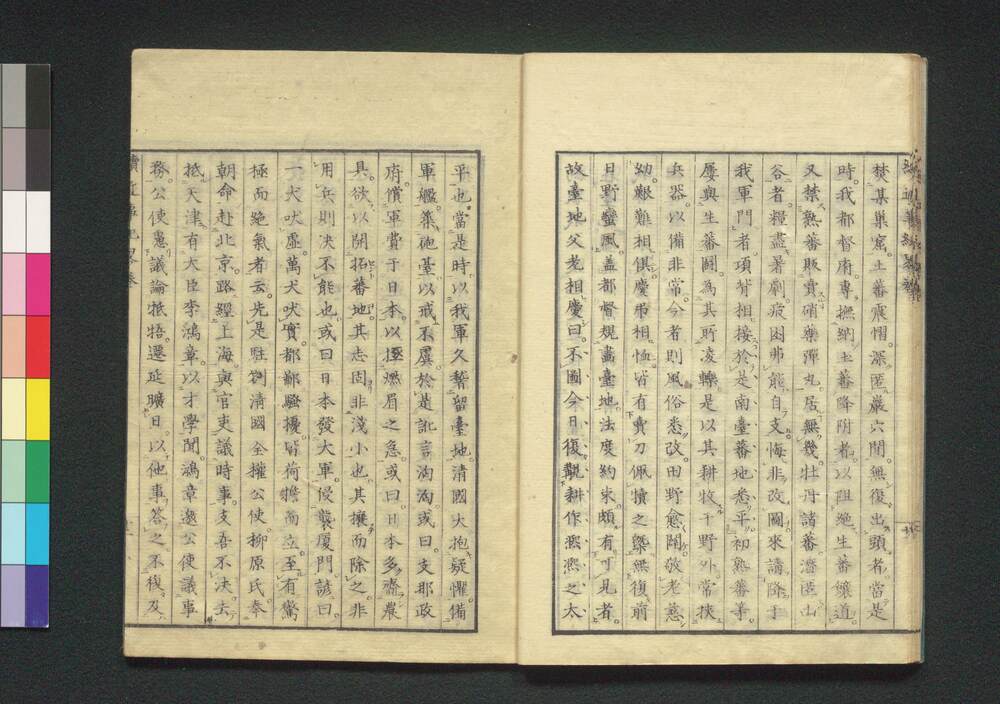 焚其巢窟。土蕃震慴。深匿巖穴間。無復出頭者。當是
時。我都督府。專撫納土蕃降附者。以阻絶生蕃餉道。
又禁熟蕃販賣硝藥彈丸。居無幾。牡丹諸蕃。潛匿山
谷者。糧盡暑劇。疲困弗能自支。悔非改圖。來請降于
我軍門者。項背相接。於是南臺蕃地悉平。初熟蕃等
屢與生蕃鬪。為其所凌轢。是以其耕牧于野外。常挾
兵器。以備非常。今者則風俗悉改。田野愈闢。敬老慈
幼。艱難相倶。慶弔相恤。皆有賣刀佩犢之樂。無復前
日野蠻風。蓋都督規畫臺地。法度約束。頗有可見者。
故臺地父老相慶曰。不圖今日復觀耕作熙熙之太
平也。當是時。以我軍久暫留臺地。清國大抱疑懼。備
軍艦。築砲臺。以戒不虞。於是訛言洶洶。或曰。支那政
府。償軍費于日本。以拯燃眉之急。或曰。日本多齎農
具。欲以開拓蕃地。其志固非淺小也。其攘而除之。非
用兵則決不能也。或曰。日本發大軍。侵襲厦門。諺曰。
一犬吠虛。萬犬吠實。都鄙騷擾。皆荷擔而立。至有驚
極而絶氣者云。先是駐劄清國全權公使柳原氏。奉
朝命。赴北京。路經上海。與官吏議時事。支吾不決。去
抵天津。有大臣李鴻章。以才學聞。鴻章邀公使議事
務。公使惠議論抵牾。遷延曠日。以他事答之不復及